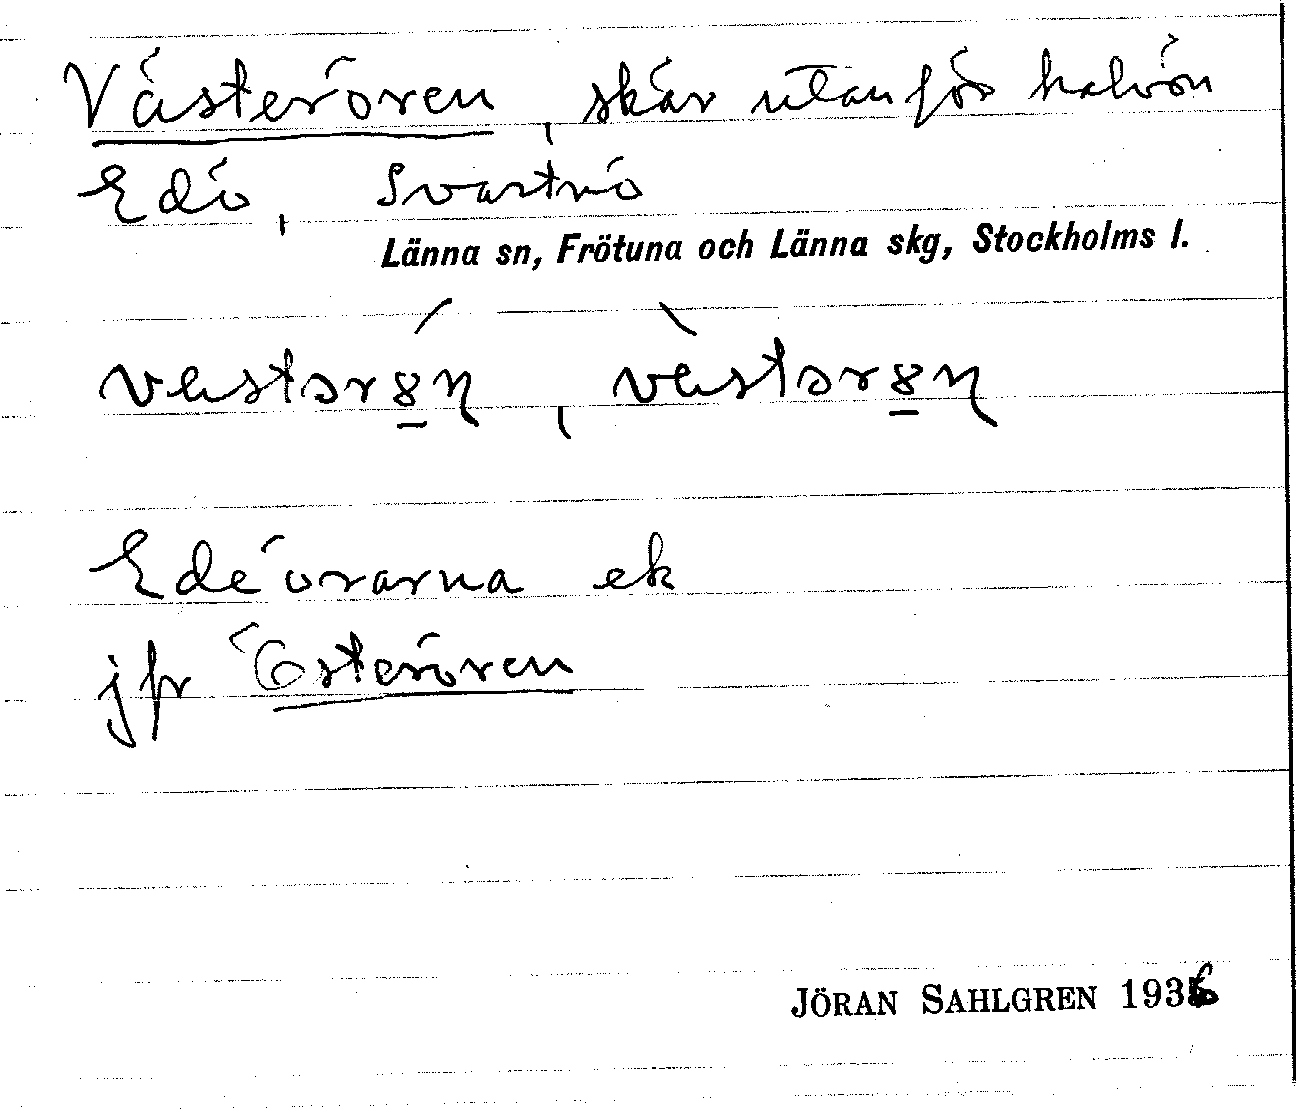 Västerören, skär utanför halvön
Edö, Svartnö
Länna sn, Frötuna och Länna skg, Stockholms l.
Edeörarna ek
jfr Österören
JÖRAN SAHLGREN 1936